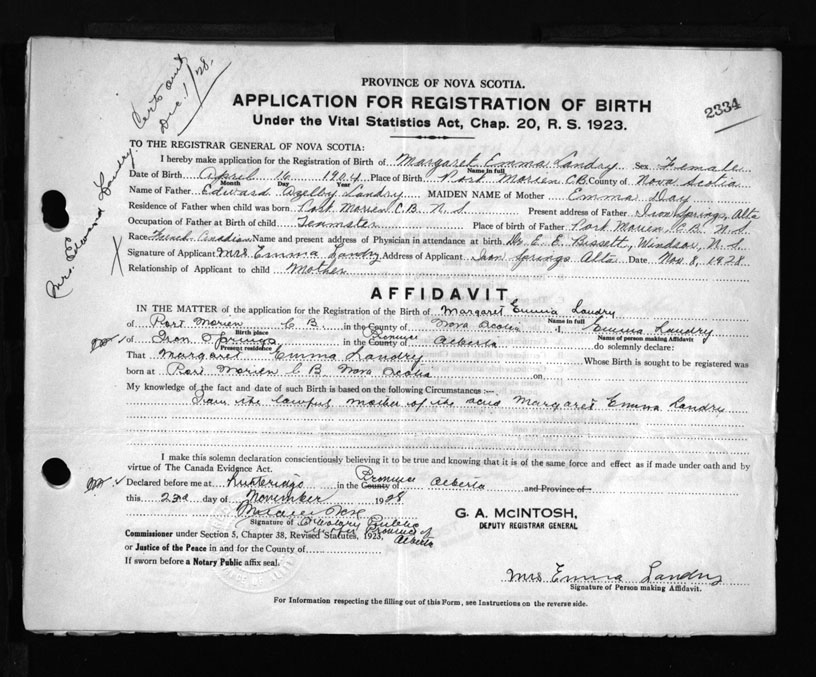 Certs and
Dec. 1/28.
Mrs. Edward Landry
PROVINCE OF NOVA SCOTIA.
APPLICATION FOR REGISTRATION OF BIRTH
Under the Vital Statistics Act, Chap. 20, R. S. 1923.
2334
TO THE REGISTRAR GENERAL OF NOVA SCOTIA:
I hereby make application for the Registration of Birth of Margaret Emma Landry Sex Female
Name in full
Date of Birth April 16 1904 Place of Birth Port Morien C.B. County of Nova Scotia
Month Day Year
Name of Father Edward Landry MAIDEN NAME of Mother Emma Day
Residence of Father when child was born Port Morien C.B. N.S. Present address of Father Iron Springs, Alta
Occupation of Father at Birth of child Teamster Place of birth of Father Port Morien, C.B. N.S.
Race French Canadian Name and present address of Physician in attendance at birth Dr. E. E. Bissett, Windsor, N.S.
X Signature of Applicant Mrs Emma Landry Address of Applicant Iron Springs Alta Date Nov 8, 1928
Relationship of Applicant to child Mother
AFFIDAVIT
IN THE MATTER of the application for the Registration of the Birth of Margaret Emma Landry
Name in full
of Port Morien C.B. in the County of Nova Scotia I Emma Landry
Birth place
Name of person making Affidavit
of Iron Springs in the County of Province Alberta do solemnly declare:
Present residence
That Margaret Emma Landry Whose Birth is sought to be registered was
born at Port Morien C B Nova Scotia on
My knowledge of the fact and date of such Birth is based on the following Circumstances :—
I am the lawful mother of the said Margaret Emma Landry
I make this solemn declaration conscientiously believing it to be true and knowing that it is of the same force and effect as if made under oath and by
virtue of The Canada Evidence Act.
Declared before me at in the County of Province Alberta and Province of
this 23rd day of November 1928
G. A. McINTOSH,
DEPUTY REGISTRAR GENERAL
Signature of A Notary Public
in & for Province of
Alberta
Commissioner under Section 5, Chapter 38, Revised Statutes, 1923,
or Justice of the Peace in and for the County of
If sworn before a Notary Public affix seal.
Mrs Emma Landry
Signature of Person making Affidavit.
For Information respecting the filling out of this Form, see Instructions on the reverse side.